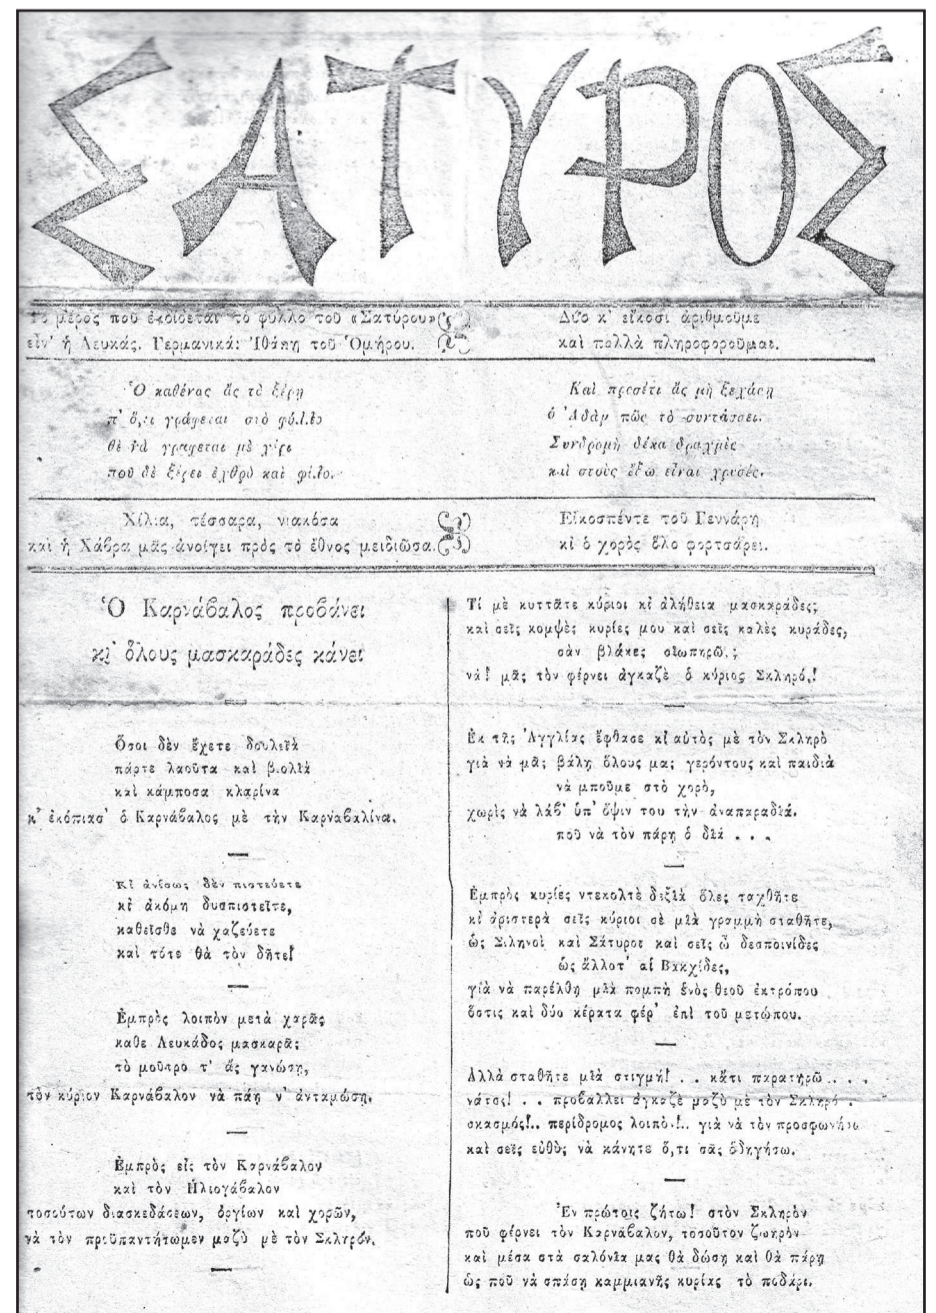 ΣΑΤΥΡΟΣ
Τὸ μέρος ποῦ ἐκδίδεται τὸ φύλλο τοῦ «Σατύρου»
εἶν' ἡ Λευκάς. Γερμανικά: Ἰθάκη τοῦ Ὁμήρου.
Δύο κ' εἴκοσι ἀριθμοῦμε
καὶ πολλὰ πληροφοροῦμαι.
Ὁ καθένας ἂς τὸ ξέρῃ
π' ὅ,τι γράφεται στὸ φύλλο
θὲ νὰ γράφεται μὲ χέρι
ποῦ δὲ ξέρει ἐχθρὸ καὶ φίλο.
Καὶ προσέτι ἂς μὴ ξεχάσῃ
ὁ Ἀδὰμ πῶς τὸ συντάσσει.
Συνδρομὴ δέκα δραχμὲς
καὶ στοὺς ἔξω εἶναι χρυσές.
Χίλια, τέσσαρα, νιακόσα
καὶ ἡ Χάβρα μᾶς ἀνοίγει πρὸς τὸ ἔθνος μειδιῶσα.
Εἰκοσπέντε τοῦ Γεννάρη
κι ὁ χορὸς ὅλο φορτσάρει.
Ὁ Καρνάβαλος προβάνει
κι' ὅλους μασκαράδες κάνει
Ὅσοι δὲν ἔχετε δουλειὰ
πάρτε λαοῦτα καὶ βιολιὰ
καὶ κάμποσα κλαρίνα
κ' ἐκόπιασ' ὁ Καρνάβαλος μὲ τὴν Καρναβαλίνα.
Κι ἀνίσως δὲν πιστεύετε
κι ἀκόμη δυσπιστεῖτε,
καθεῖσθε νὰ χαζεύετε
καὶ τότε θὰ τὸν δῆτε!
Ἐμπρὸς λοιπὸν μετὰ χαρᾶς
καθε Λευκάδος μασκαρᾶς
τὸ μοῦτρο τ' ἂς γανώσῃ,
τὸν κύριον Καρνάβαλον νὰ πάῃ ν' ἀνταμώσῃ.
Ἐμπρὸς εἰς τὸν Καρνάβαλον
καὶ τὸν Ηλιογάβαλον
τοσούτων διασκεδάσεων, ὀργίων καὶ χορῶν,
νὰ τὸν προϋπαντήτωμεν μαζὺ μὲ τὸν Σκληρόν.
Τί μὲ κυττᾶτε κύριοι κι ἀλήθεια μασκαράδες;
καὶ σεῖς κομψὲς κυρίες μου καὶ σεῖς καλὲς κυράδες,
σὰν βλάκες σιωπηρῶς;
νά! μᾶς τὸν φέρνει ἀγκαζὲ ὁ κύριος Σκληρός!
Ἐκ τῆς Ἀγγλίας ἔφθασε κι αὐτὸς μὲ τὸν Σκληρὸ
γιὰ νὰ μᾶς βάλῃ ὅλους μας γερόντους καὶ παιδιὰ
νὰ μποῦμε στὸ χορὸ,
χωρὶς νὰ λάβ' ὑπ' ὄψιν του τὴν ἀναπαραδιά.
ποῦ νὰ τὸν πάρῃ ὁ διά . . .
Ἐμπρὸς κυρίες ντεκολτὲ δεξιὰ ὅλες ταχθῆτε
κι ἀριστερὰ σεῖς κύριοι σὲ μιὰ γραμμὴ σταθῆτε,
ὡς Σιληνοὶ καὶ Σάτυροι καὶ σεῖς ὦ δεσποινίδες
ὡς ἄλλοτ' αἱ Βακχίδες,
γιὰ νὰ παρέλθῃ μιὰ πομπὴ ἑνὸς θεοῦ ἐκτρόπου
ὅστις καὶ δύο κέρατα φέρ' ἐπὶ τοῦ μετώπου.
Ἀλλὰ σταθῆτε μιὰ στιγμή! . . κᾶτι παρατηρῶ . . . .
νάτος! . . προβάλλει ἀγκαζὲ μαζὺ μὲ τὸν Σκληρό .
σκασμός!.. περίδρομος λοιπό.!.. γιὰ νὰ τὸν προσφωνήσω
καὶ σεῖς εὐθὺς νὰ κάνητε ὅ,τι σᾶς ὁδηγήσω.
Ἐν πρώτοις ζήτω! στὸν Σκληρὸν
ποῦ φέρνει τὸν Καρνάβαλον, τοσοῦτον ζωηρὸν
καὶ μέσα στὰ σαλόνια μας θὰ δώσῃ καὶ θὰ πάρῃ
ὡς ποῦ νὰ σπάσῃ καμμιανῆς κυρίας τὸ ποδάρι.